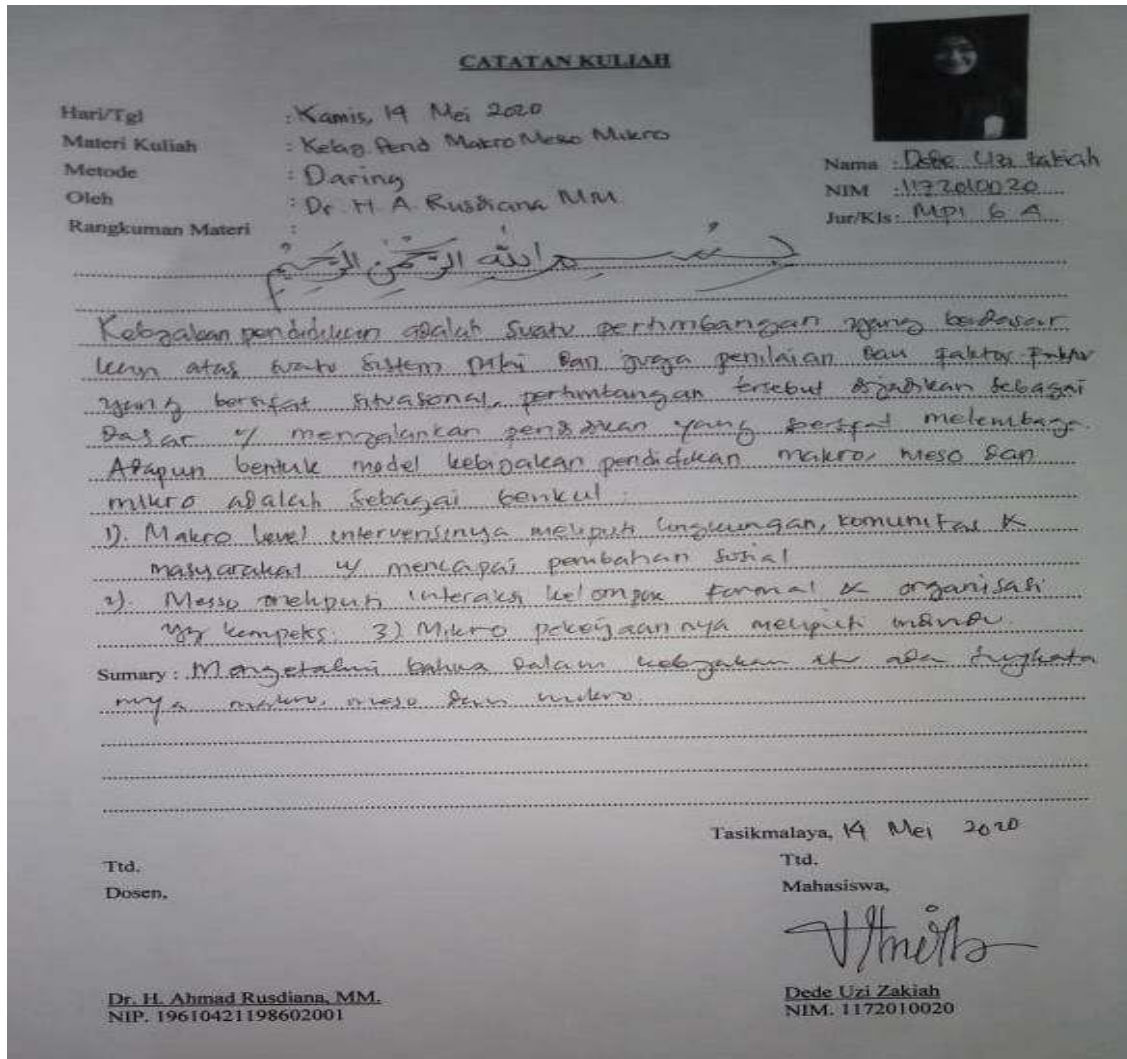 CATATAN KULIAH
Hari/Tgl : Kamis, 14 Mei 2020
Materi Kuliah : Kebag Pend Makro Meso Mikro
Metode : Daring
Oleh : Dr. H. A. Rusdiana MM
Rangkuman Materi :
Nama : Dede Uzi Zakiah
NIM : 1172010020
Jur/Kls : MPI 6 A
بسم الله الرحمن الرحيم
Kebijakan pendidikan adalah suatu pertimbangan yang berdasar
kan atas suatu sistem nilai dan juga penilaian dan faktor-faktor
yang bersifat situasional, pertimbangan tersebut dijadikan sebagai
dasar u/ menjalankan pendidikan yang bersifat melembaga.
Adapun bentuk model kebijakan pendidikan makro, meso dan
mikro adalah sebagai berikut :
1). Makro level intervensinya meliputi lingkungan, komunitas &
masyarakat u/ mencapai perubahan sosial
2). Messo meliputi interaksi kelompok formal & organisasi
yg kompleks. 3) Mikro pekerjaannya meliputi
Sumary : Mengetahui bahwa dalam kebijakan itu ada tingkata
nnya makro, meso dan mikro.
Tasikmalaya, 14 Mei 2020
Ttd.
Dosen,
Ttd.
Mahasiswa,
Dr. H. Ahmad Rusdiana, MM.
NIP. 19610421198602001
Dede Uzi Zakiah
NIM. 1172010020